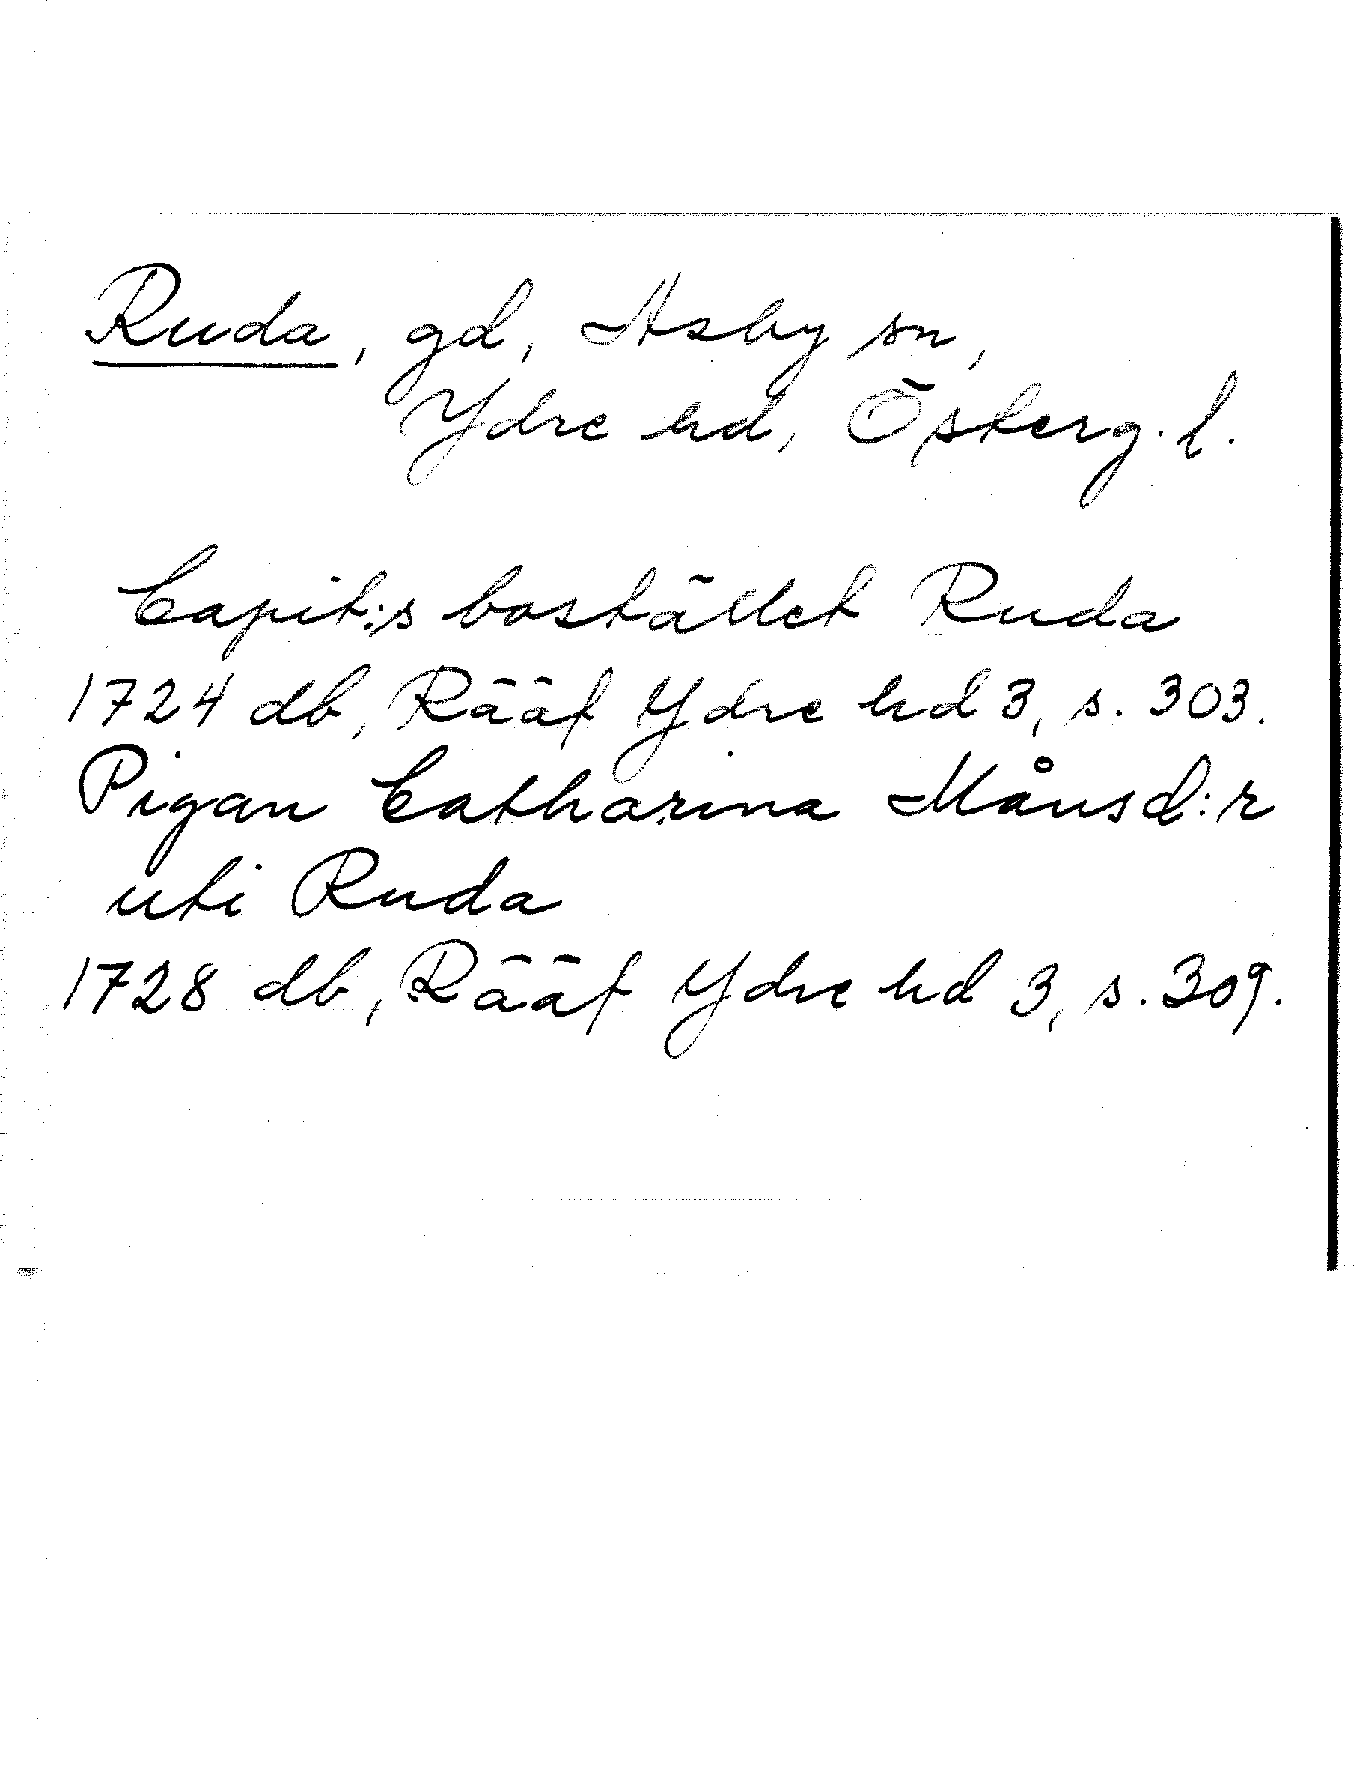 Ruda, gd, Asby sn,
Ydre hd, Österg. l.
Capit:s bostället Ruda
1724 db, Rääf Ydre hd 3, s. 303.
Pigan Catharina Månsd:r
uti Ruda
1728 db, Rääf Ydre hd 3, s. 309.